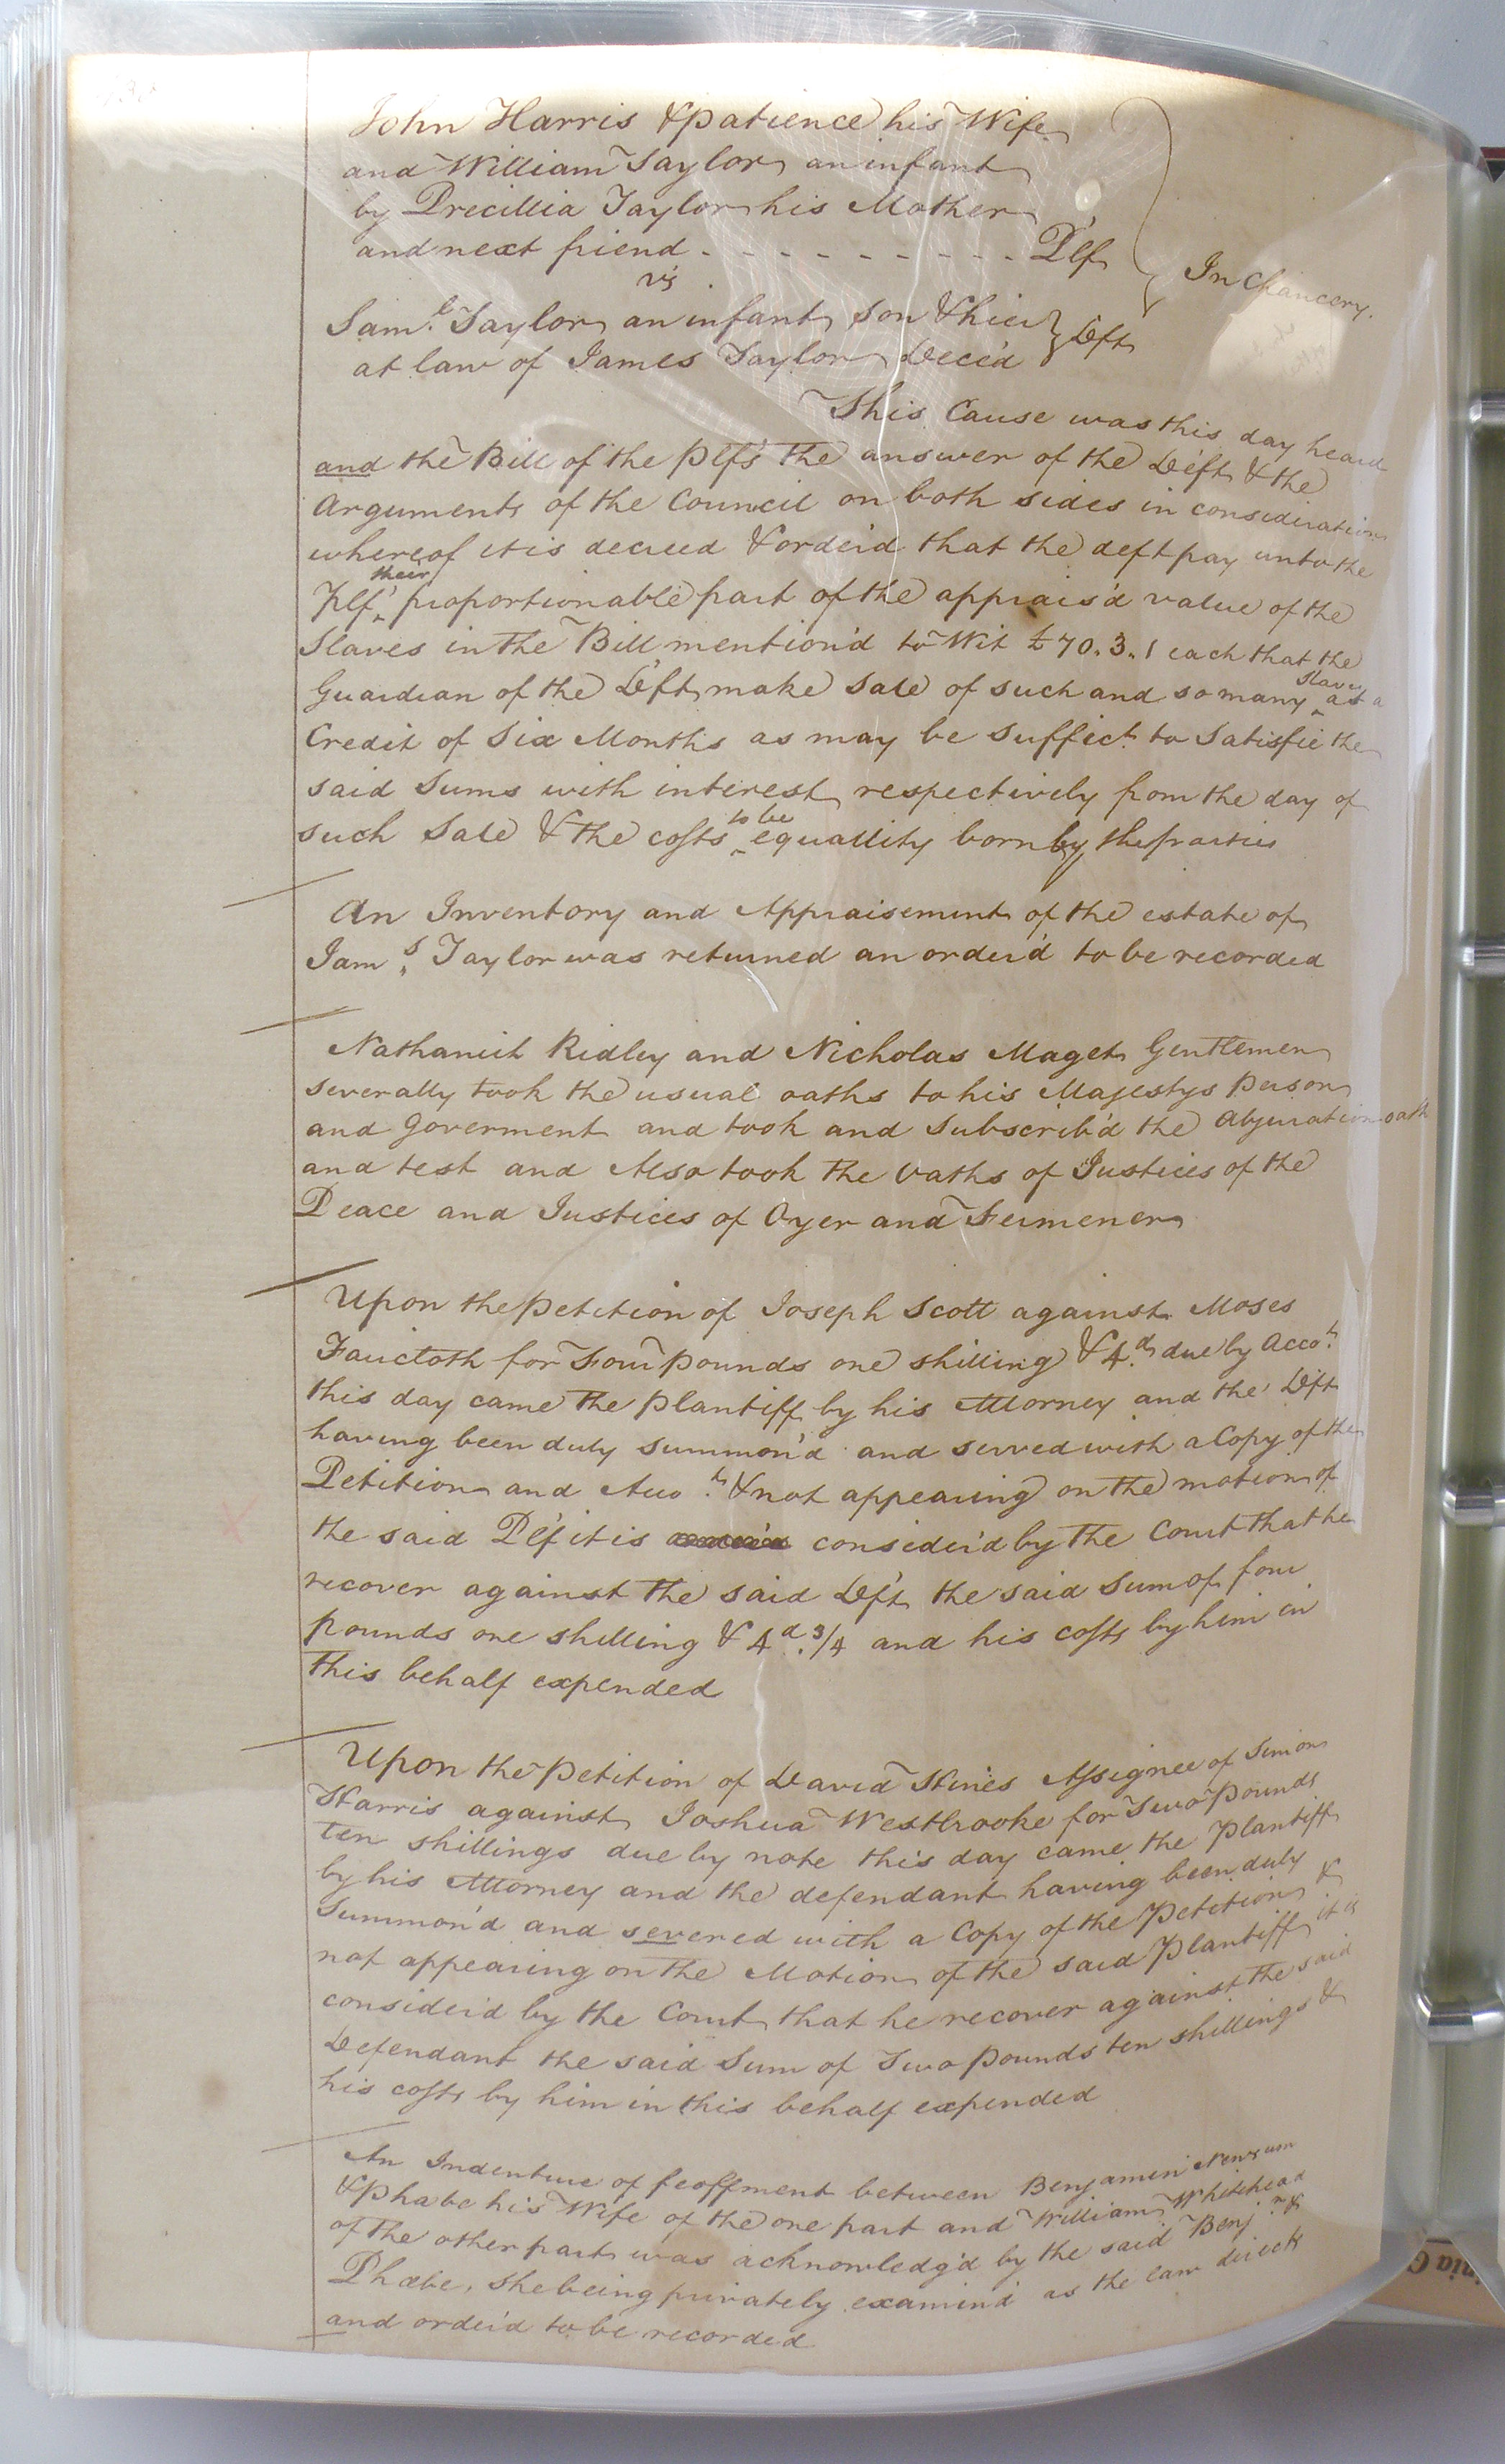 John Harris & patience his Wife
and William Taylor an infant
by Precillia Taylor his Mother
and next friend - - - - - - - - - - Plf
vs
In Chancery.
Sam.l Taylor an infant son & hier
at law of James Taylor Dece'd } Deft
This Cause was this day heard
and the Bill of the Plfs the answer of the Deft & the
Arguments of the Council on both sides in consideration
whereof it is decreed & order'd that the deft pay unto the
Plfs their proportionable part of the apprais'd value of the
Slaves in the Bill mention'd to Wit £70.3.1 each that the
Guardian of the Deft make Sale of such and so many slaves at a
Credit of Six Months as may be suffict to Satisfie the
said Sums with interest respectively from the day of
such Sale & the costs to be equallity born by the parties
An Inventory and Appraisement of the estate of
Jam.s Taylor was returned an order'd to be recorded
Nathaniel Ridley and Nicholas Maget Gentlemen
severally took the usual oaths to his Majestys Person
and Goverment and took and Subscrib'd the Abjuration oath
and test and Also took the Oaths of Justices of the
Peace and Justices of Oyer and Terminer
Upon the petition of Joseph Scott against Moses
Faircloth for Four pounds one shilling & 4.d due by Acco.t
this day came the plantiff by his Attorney and the Deft
having been duly summon'd and served with a Copy of the
Petition and Acco.t & not appearing on the motion of
the said Plf it is consider'd by the Court that he
recover against the said Deft the said Sum of four
pounds one shilling & 4.d 3/4 and his costs by him in
this behalf expended
Upon the Petition of David Hines Assignee of Simon
Harris against Joshua Westbrooke for Two Pounds
ten shillings due by note this day came the Plantiff
by his Attorney and the defendant having been duly
Summon'd and severed with a Copy of the Petition &
not appearing on the Motion of the said Plantiff it is
consider'd by the Court that he recover against the said
Defendant the said Sum of Two pounds ten shillings &
his costs by him in this behalf expended
An Indenture of feoffment between Benjamin Newsum
& Phabe his Wife of the one part and William Whitehead
of the other part was acknowledg'd by the said Benj.n &
Phœbe, she being privately examin'd as the law direck
and order'd to be recorded